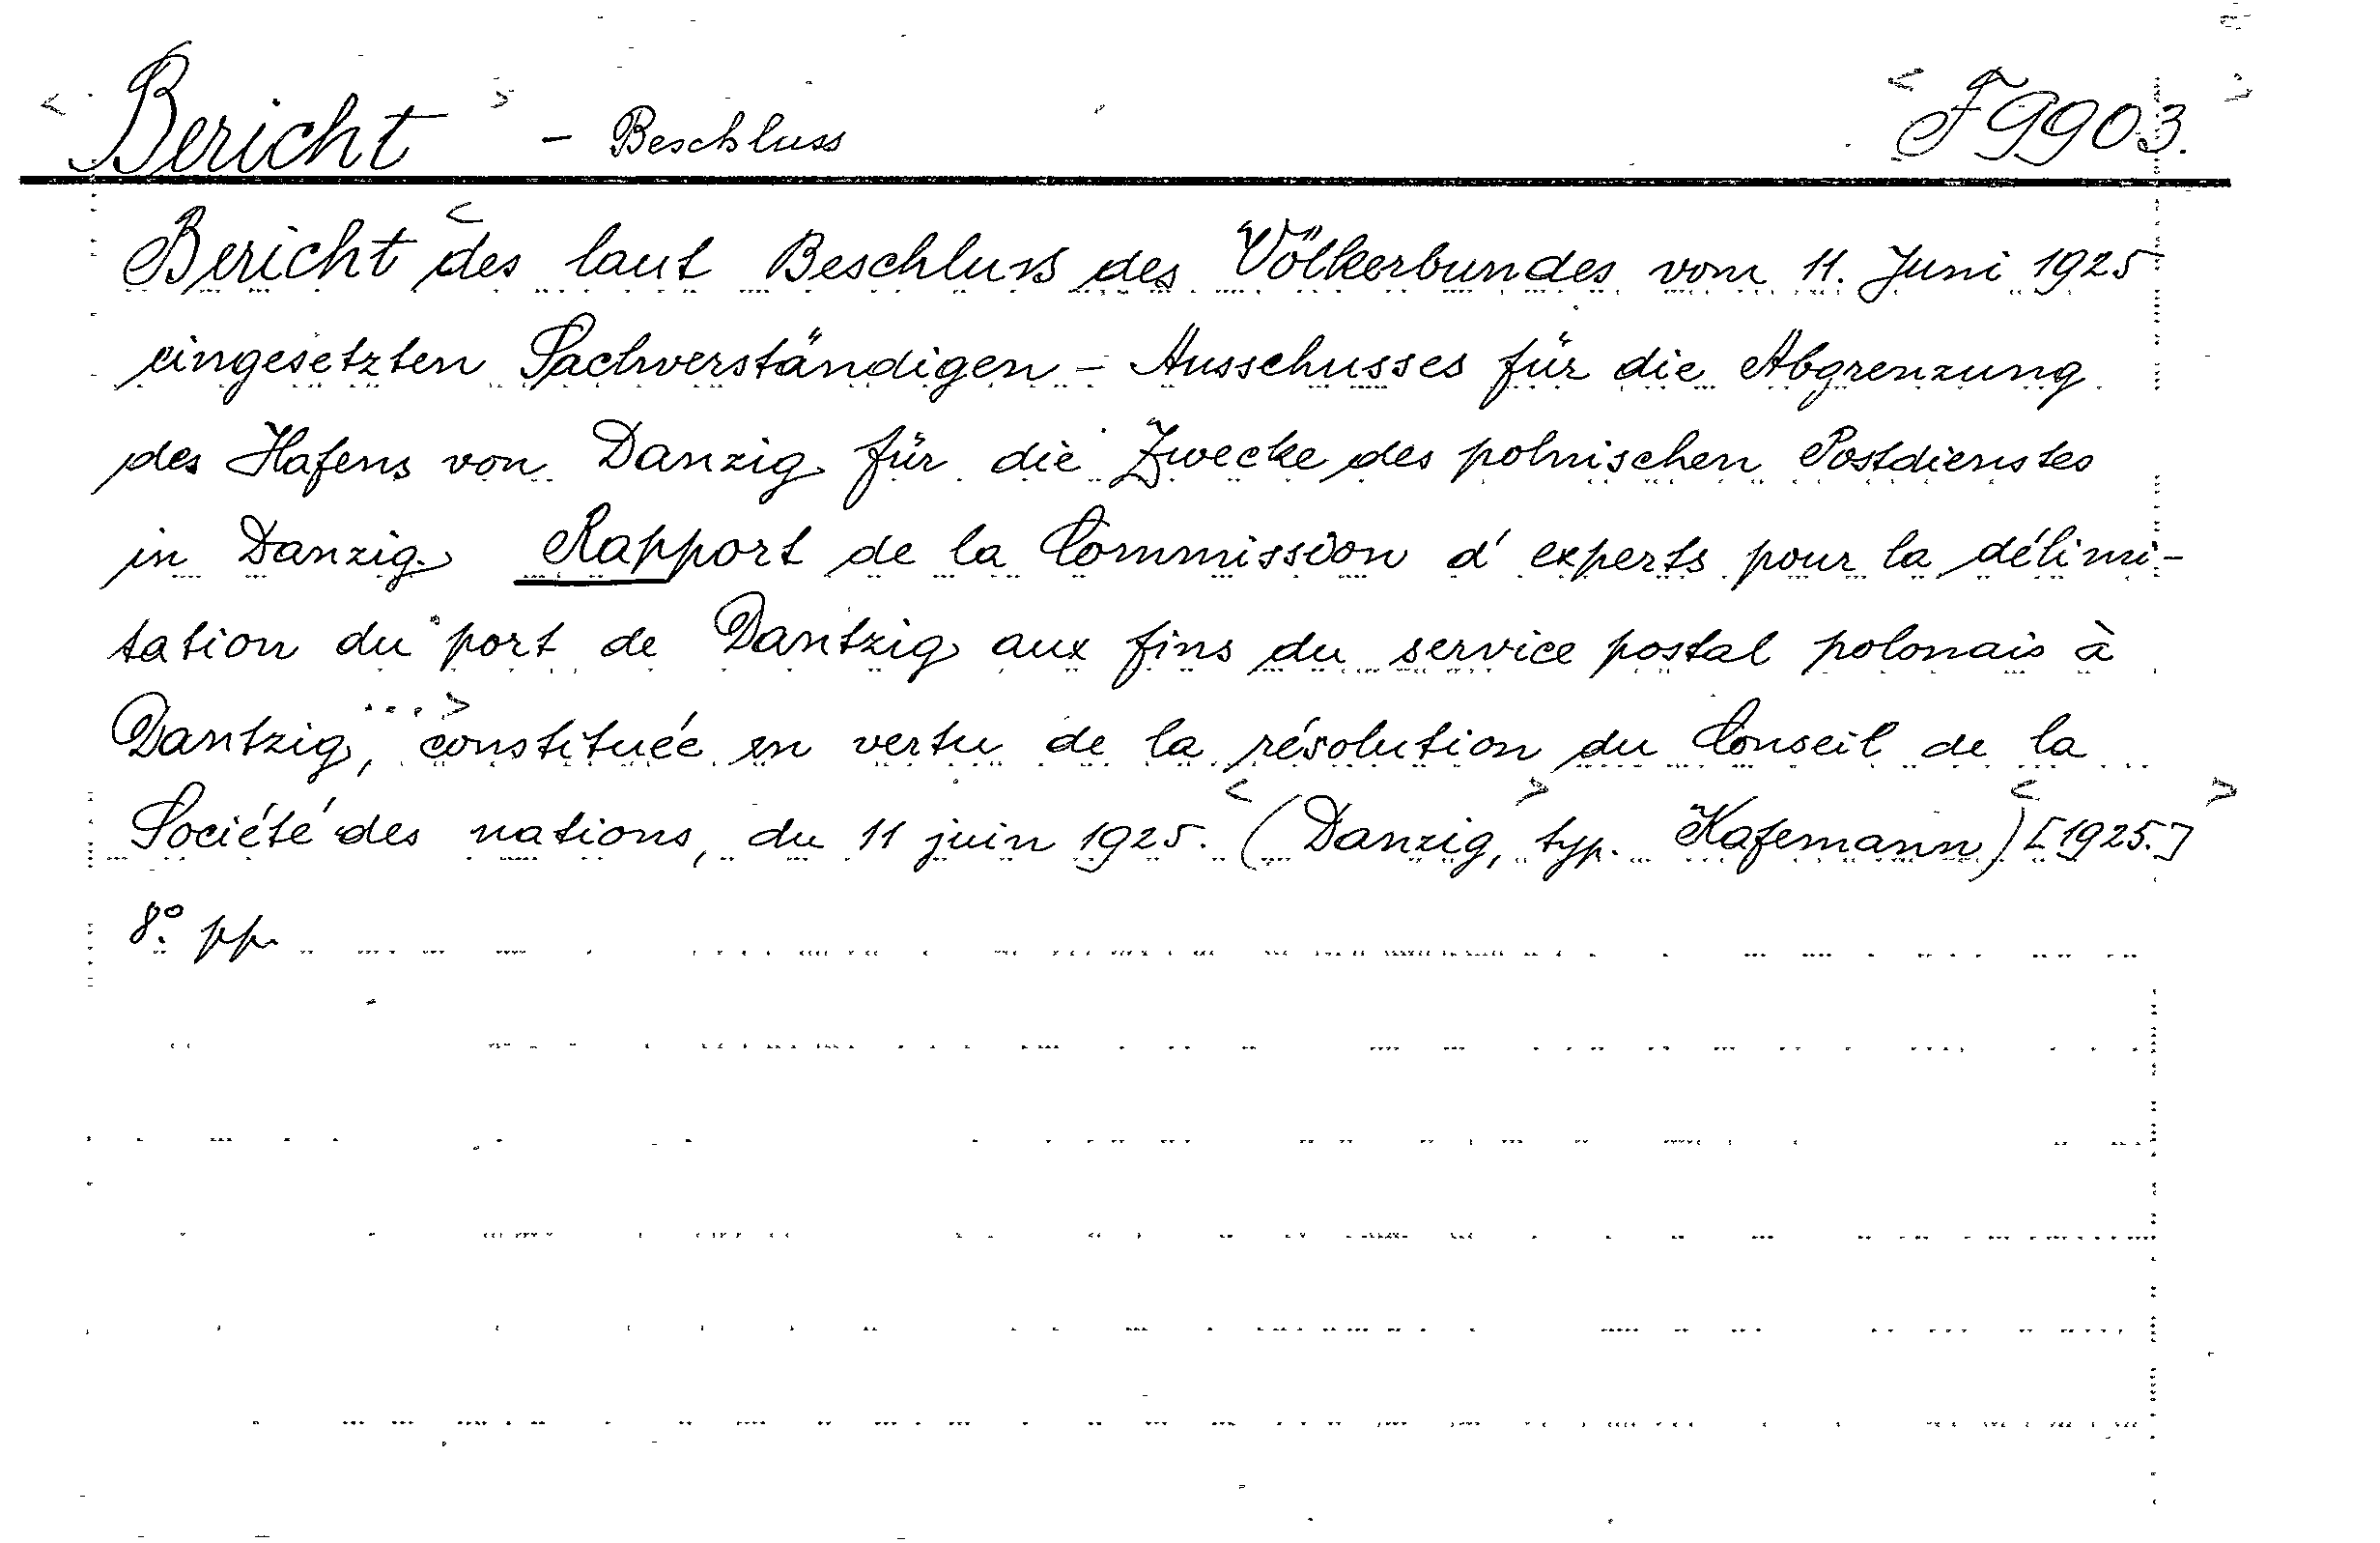 < Bericht > - Beschluss < F 9903. >
Bericht < des laut Beschluss des Völkerbundes vom 11. Juni 1925
eingesetzten Sachverständigen - Ausschusses für die Abgrenzung
des Hafens von Danzig für die Zwecke des polnischen Postdienstes
in Danzig. Rapport de la Commission d'experts pour la délimi-
tation du port de Dantzig aux fins du service postal polonais à
Dantzig, ...> constituée en vertu de la résolution du Conseil de la
Société des nations, du 11 juin 1925. < (Danzig, > typ. Kafemann) < [1925.] >
8° pp.